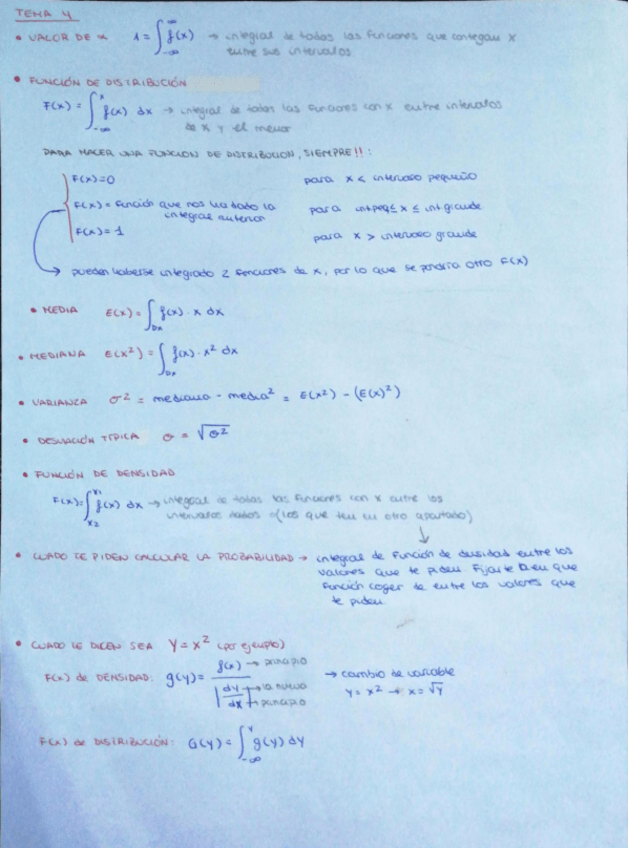 TEMA 4
• VALOR DE α 1 = ∫_{-∞}^{∞} f(x) → integral de todas las funciones que contegan x
entre sus intervalos
• FUNCIÓN DE DISTRIBUCIÓN
F(x) = ∫_{-∞}^{x} f(x) dx → integral de todas las funciones con x entre intervalos
de x y el menor
PARA HACER UNA FUNCION DE DISTRIBUCION, SIEMPRE!!:
F(x)=0 para x < intervalo pequeño
F(x) = función que nos ha dado la para int.peq ≤ x ≤ int grande
integral anterior
F(x) = 1 para x > intervalo grande
→ pueden haberse integrado 2 funciones de x, por lo que se pondría otro F(x)
• MEDIA E(x) = ∫_{Dx} f(x) · x dx
• MEDIANA E(x²) = ∫_{Dx} f(x) · x² dx
• VARIANZA σ² = mediana - media² = E(x²) - (E(x)²)
• DESVIACIÓN TÍPICA σ = √σ²
• FUNCIÓN DE DENSIDAD
F(x) = ∫_{x2}^{x1} f(x) dx → integral de todas las funciones con x entre los
intervalos dados (los que ten en otro apartado)
↓
• CUADO TE PIDEN CALCULAR LA PROBABILIDAD → integral de función de dusidad entre los
valores que te piden. Fijarte bien que
función coger entre los valores que
te piden.
• CUADO TE DICEN SEA Y = x² (por ejemplo)
F(x) de DENSIDAD: g(y) = f(x) / |dy/dx| → cambio de variable
f(x) → principio
dy → la nueva
dx → principio
Y = x² → x = √y
F(x) de DISTRIBUCIÓN: G(y) = ∫_{-∞}^{y} g(y) dy